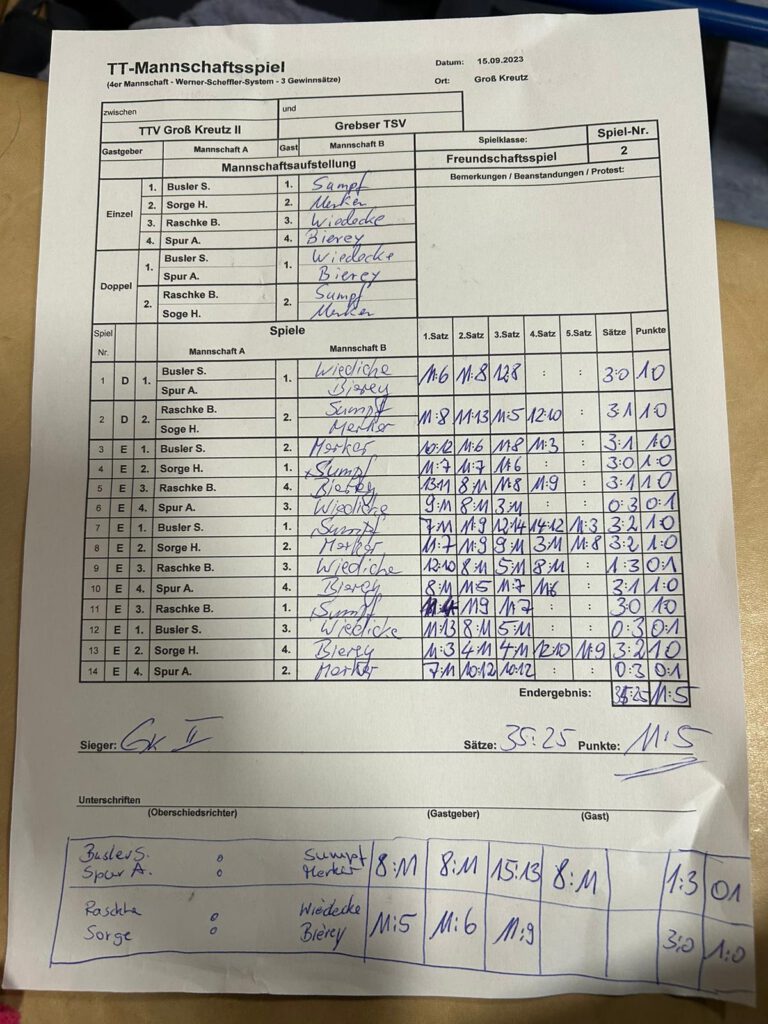 TT-Mannschaftsspiel Datum: 15.09.2023
(4er Mannschaft - Werner-Scheffler-System - 3 Gewinnsätze) Ort: Groß Kreutz
zwischen und
TTV Groß Kreutz II Grebser TSV Spielklasse: Spiel-Nr.
Gastgeber Mannschaft A Gast Mannschaft B Freundschaftsspiel 2
Mannschaftsaufstellung Bemerkungen / Beanstandungen / Protest:
Einzel
1. Busler S. 1. Sumpf
2. Sorge H. 2. Merker
3. Raschke B. 3. Wiedecke
4. Spur A. 4. Bierey
Doppel
1. Busler S. 1. Wiedecke
Spur A. Bierey
2. Raschke B. 2. Sumpf
Soge H. Merker
Spiel Nr. Spiele
Mannschaft A Mannschaft B 1.Satz 2.Satz 3.Satz 4.Satz 5.Satz Sätze Punkte
1 D 1. Busler S. 1. Wiedicke 11:6 11:8 12:8 : : 3:0 1:0
Spur A. Bierey
2 D 2. Raschke B. 2. Sumpf 11:8 11:13 11:5 12:10 : 3:1 1:0
Soge H. Merker
3 E 1. Busler S. 2. Merker 10:12 11:6 11:8 11:3 : 3:1 1:0
4 E 2. Sorge H. 1. Sumpf 11:7 11:7 11:6 : : 3:0 1:0
5 E 3. Raschke B. 4. Bierey 13:11 8:11 11:8 11:9 : 3:1 1:0
6 E 4. Spur A. 3. Wiedicke 9:11 8:11 3:11 : : 0:3 0:1
7 E 1. Busler S. 1. Sumpf 7:11 11:9 12:14 14:12 11:3 3:2 1:0
8 E 2. Sorge H. 2. Merker 11:7 11:9 9:11 3:11 11:8 3:2 1:0
9 E 3. Raschke B. 3. Wiedicke 12:10 8:11 5:11 8:11 : 1:3 0:1
10 E 4. Spur A. 4. Bierey 8:11 11:5 11:7 11:6 : 3:1 1:0
11 E 3. Raschke B. 1. Sumpf 11:4 11:9 11:7 : : 3:0 1:0
12 E 1. Busler S. 3. Wiedicke 11:13 8:11 5:11 : : 0:3 0:1
13 E 2. Sorge H. 4. Bierey 11:3 4:11 4:11 12:10 11:9 3:2 1:0
14 E 4. Spur A. 2. Merker 7:11 10:12 10:12 : : 0:3 0:1
Endergebnis: 35:25 11:5
Sieger: GK II Sätze: 35:25 Punkte: 11:5
Unterschriften
(Oberschiedsrichter) (Gastgeber) (Gast)
Busler S. : Sumpf 8:11 8:11 15:13 8:11 1:3 0:1
Spur A. Merker
Raschke : Wiedecke 11:5 11:6 11:9 3:0 1:0
Sorge Bierey